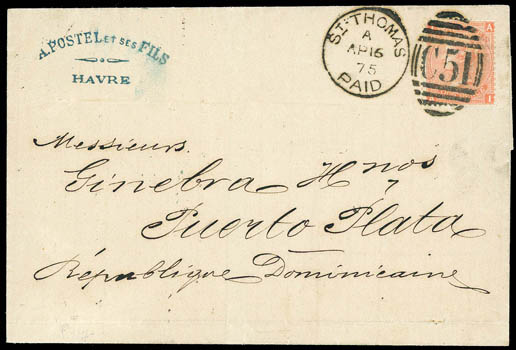 A. POSTEL ET SES FILS
HAVRE
ST. THOMAS
A
AP 16
75
PAID
C51
A
I
Messieurs
Ginebra Hnos
Puerto Plata
République Dominicaine